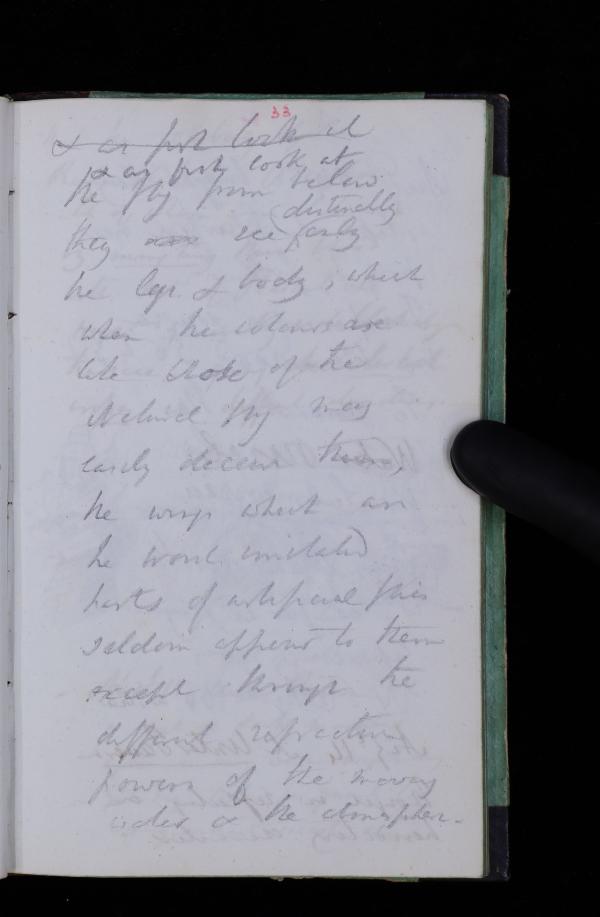 33
& as fish look at
& as fish look at
the fly from below
distinctly
they see only
the legs & body, which
when the colours are
like those of the
Natural fly may
easily deceive them,
the wings which are
the worst imitated
parts of artificial flies
seldom appear to them
except through the
different refractive
powers of the moving
water & the atmosphere.